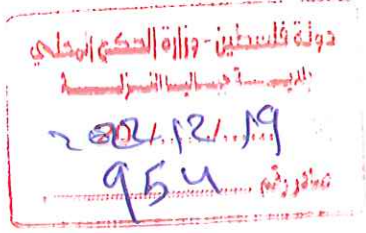 دولة فلسطين - وزارة الحكم المحلي
بلديـــة جباليا النـــزلـــة
2022/12/19
صادر رقم 954